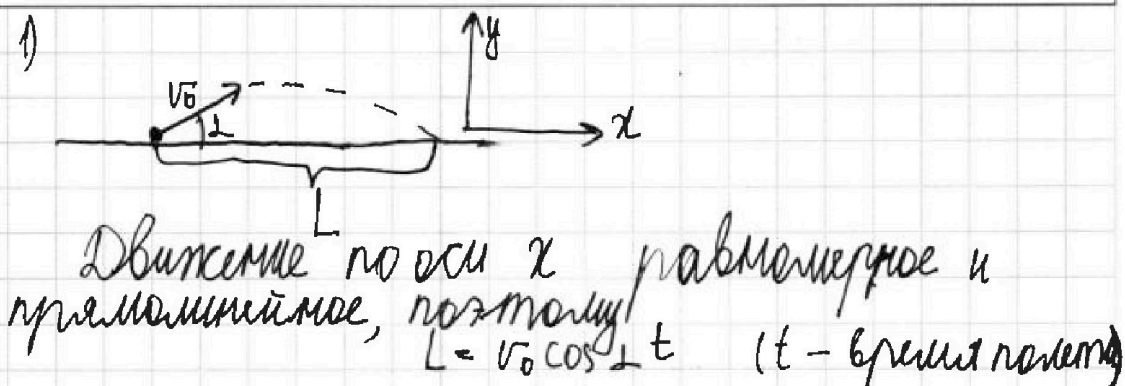 1)
y
V₀
α
x
L
Движение по оси x равномерное и
прямолинейное, поэтому
L = V₀ cos α t (t - время полета)